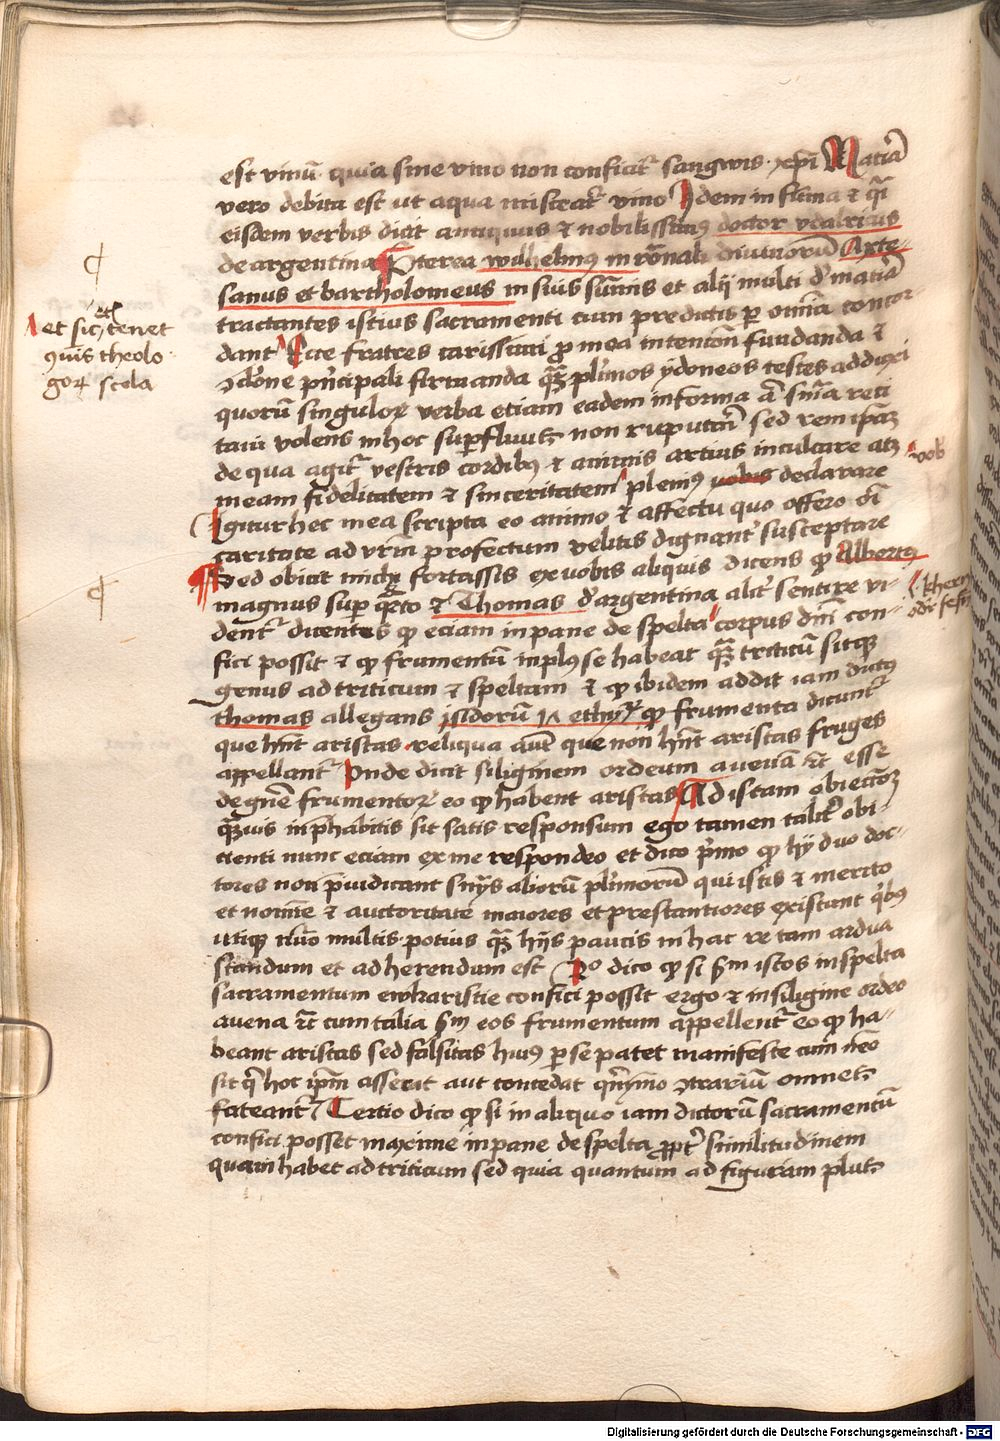 est vinū quia sine vino non conficit᷑ sangwis xp̄i Materīa
vero debita est ut aqua misceat᷑ vino Idem in sūma ⁊ q̄si
eisdem verbis dicit antiquus ⁊ nobilissimꝰ doctor vdalricus
de argentina Preterea wilhelmꝰ in rōnali divinorū Axte-
sanus et bartholomeus in suis sūmis et alij multi d' materīā
tractantes istius sacramenti cum predictis ꝑ omnia concor-
dant Ecce fratres carissimi ꝓ mea intentōn fundanda ⁊
ꝯclōne pn̄cipali firmanda qꝫ pl'imos ydoneos testes adduxi
quorū singuloꝝ verba etiam eadem in forma
volens in hoc suꝑfluū non reputari sed rem ip̄aꝫ
de qua agit᷑ vestris cordibꝰ ⁊ animis artius inculcare atqꝫ
meam fidelitatem ⁊ sinceritatem plenius vobis declarare
Igitur hec mea scripta eo animo ⁊ affectu quo offero
caritate ad vr̄m profectum velitis dignant᷑ susceptare
Sed obiciat michi fortassis ex vobis aliquis dicens ꝙ Albertꝰ
magnus suꝑ q̄rto ⁊ Thomas d'argentina alit᷑ sentire vi-
dent᷑ dicentes ꝙ eciam in pane de spelta corpus dn̄i con-
fici possit ⁊ ꝙ frumentū in plus se habeat qꝫ triticū sitqꝫ
genus ad triticum ⁊ speltam ⁊ ꝙ ibidem addit iam dictus
thomas allegans isidorū in ethyꝝ ꝙ frumenta dicunt᷑
que hn̄t aristas reliqua aūt que non hn̄t aristas fruges
appellant᷑ Unde dicit siliginem ordeum avenā ⁊c̄ esse
de gn̄e frumentoꝝ eo ꝙ habent aristas Ad istam obiectōꝫ
qꝫuis in p̄habitis sit satis responsum ego tamen talit᷑ obi-
cienti nunc eciam ex me respondeo et dico pͥmo ꝙ hij duo doc-
tores non p̄iudicant snījs aliorū pl'imorū qui istis ⁊ merito
et noīne ⁊ auctoritate maiores et prestantiores existunt qͥbus
utiqꝫ multis potius qꝫ hijs paucis in hac re tam ardua
standum et adherendum est 2o dico ꝙ si sm̄ istos in spelta
sacramentum ewkaristie confici possit ergo ⁊ in siligine ordeo
avena ⁊c̄ cum talia sm̄ eos frumentum appellent᷑ eo ꝙ ha-
beant aristas sed falsitas huiꝰ ꝑ se patet manifeste cum nēo
sit qͥ hoc ip̄m asserat aut concedat qn̄ymo ꝯtrariū omnes
fateant᷑ Tertio dico ꝙ si in aliquo iam dictorū sacramentū
confici posset maxime in pane de spelta ꝓpt᷑ similitudinem
quam habet ad triticum sed quia quantum ad figuram plus
et sic tenet
ꝯmunis theolo
goꝝ scola
vob